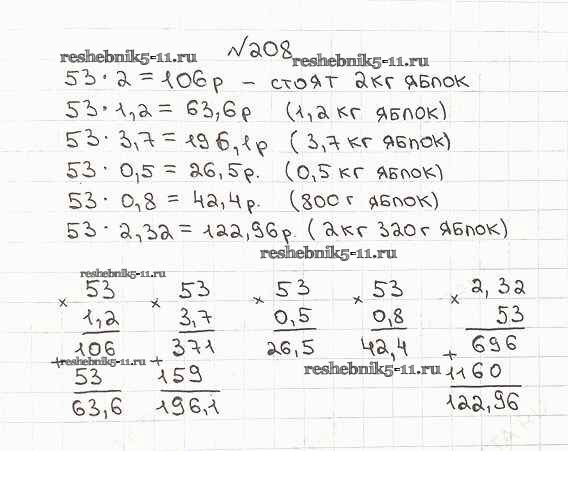 №208
reshebnik5-11.ru
reshebnik5-11.ru
53 · 2 = 106 р – стоят 2 кг яблок
53 · 1,2 = 63,6 р (1,2 кг яблок)
53 · 3,7 = 196,1 р (3,7 кг яблок)
53 · 0,5 = 26,5 р. (0,5 кг яблок)
53 · 0,8 = 42,4 р. (800 г яблок)
53 · 2,32 = 122,96 р. (2 кг 320 г яблок)
reshebnik5-11.ru
reshebnik5-11.ru
× 53 × 53 × 53 × 53 × 2,32
1,2 3,7 0,5 0,8 53
106 371 26,5 42,4 696
+ reshebnik5-11.ru + reshebnik5-11.ru +
53 159 1160
63,6 196,1 122,96